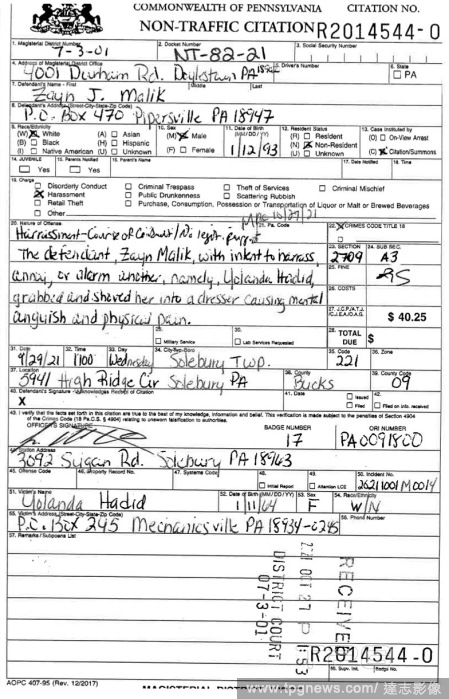 COMMONWEALTH OF PENNSYLVANIA CITATION NO.
NON-TRAFFIC CITATION R2014544-0
1. Magisterial District Number
7-3-01
2. Docket Number
NT-82-21
3. Social Security Number
4. Address of Magisterial District Office
4001 Durham Rd. Doylestown PA
5. Driver's Number
6. State
PA
7. Defendant's Name - First Middle Last
Zayn J. Malik
8. Defendant's Address (Street-City-State-Zip Code)
P.O. Box 470 Pipersville PA 18947
9. Race/Ethnicity
(W) White (A) Asian
(B) Black (H) Hispanic
(I) Native American (U) Unknown
10. Sex
(M) Male
(F) Female
11. Date of Birth (MM / DD / YY)
1/12/93
12. Resident Status
(R) Resident
(N) Non-Resident
(U) Unknown
13. Case Instituted by
(O) On-View Arrest
(C) Citation/Summons
14. JUVENILE
Yes
15. Parents Notified
Yes
16. Parent's Name
17. Date Notified
18. Time
19. Charge
Disorderly Conduct Criminal Trespass Theft of Services Criminal Mischief
Harassment Public Drunkenness Scattering Rubbish
Retail Theft Purchase, Consumption, Possession or Transportation of Liquor or Malt or Brewed Beverages
Other
20. Nature of Offense
21. Pa. Code
22. CRIMES CODE TITLE 18
Harrassment-Course of Conduct/No legit.
23. SECTION 24. SUB SEC.
2709 A3
The defendant, Zayn Malik, with intent to harass,
annoy, or alarm another, namely, Yolanda Hadid,
grabbed and shoved her into a dresser causing mental
anguish and physical pain.
25. FINE
26. COSTS
27. J.C.P./A.T.J.
C.J.E.A./O.A.G.
$ 40.25
28. TOTAL DUE $
29.
Military Service
30.
Lab Services Requested
31. Date
9/29/21
32. Time
1100
33. Day
Wednesday
34. City-Twp-Boro
Solebury Twp.
35. Code
221
36. Zone
37. Location
5941 High Ridge Cir Solebury PA
38. County
Bucks
39. County Code
09
40. Defendant's Signature - Acknowledges Receipt of Citation
X
41. Date
Issued
Filed
42.
Filed on info. received
43. I verify that the facts set forth in this citation are true to the best of my knowledge, information and belief. This verification is made subject to the penalties of Section 4904
of the Crimes Code (18 Pa.C.S. § 4904) relating to unsworn falsification to authorities.
OFFICER'S SIGNATURE
BADGE NUMBER
17
ORI NUMBER
PA0091800
44. Station Address
3092 Sugan Rd. Solebury PA 18963
45. Offense Code
46. Property Record No.
47. Systems Code
48.
Initial Report
49.
Attention LCE
50. Incident No.
51. Victim's Name
Yolanda Hadid
52. Date of Birth (MM/DD/YY)
1/11/64
53. Sex
F
54. Race/Ethnicity
W/N
55. Victim's Address (Street-City-State-Zip Code)
P.O. Box 245 Mechanicsville PA 18934-0245
56. Phone Number
57. Remarks/Subpoena List
RECEIVED
2021 OCT 27 P 1:53
DISTRICT COURT
07-3-01
R2014544-0
AOPC 407-95 (Rev. 12/2017)
www.tpgnews.com / 達志影像